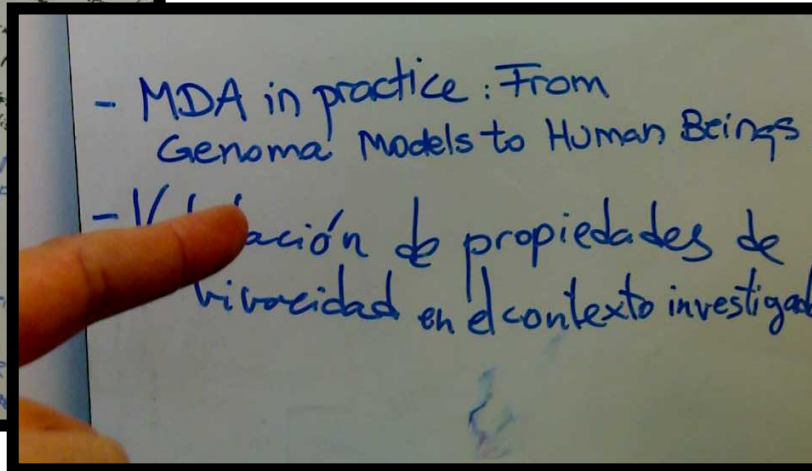 - MDA in practice: From
Genoma Models to Human Beings
- de propiedades de
vivacidad en el contexto